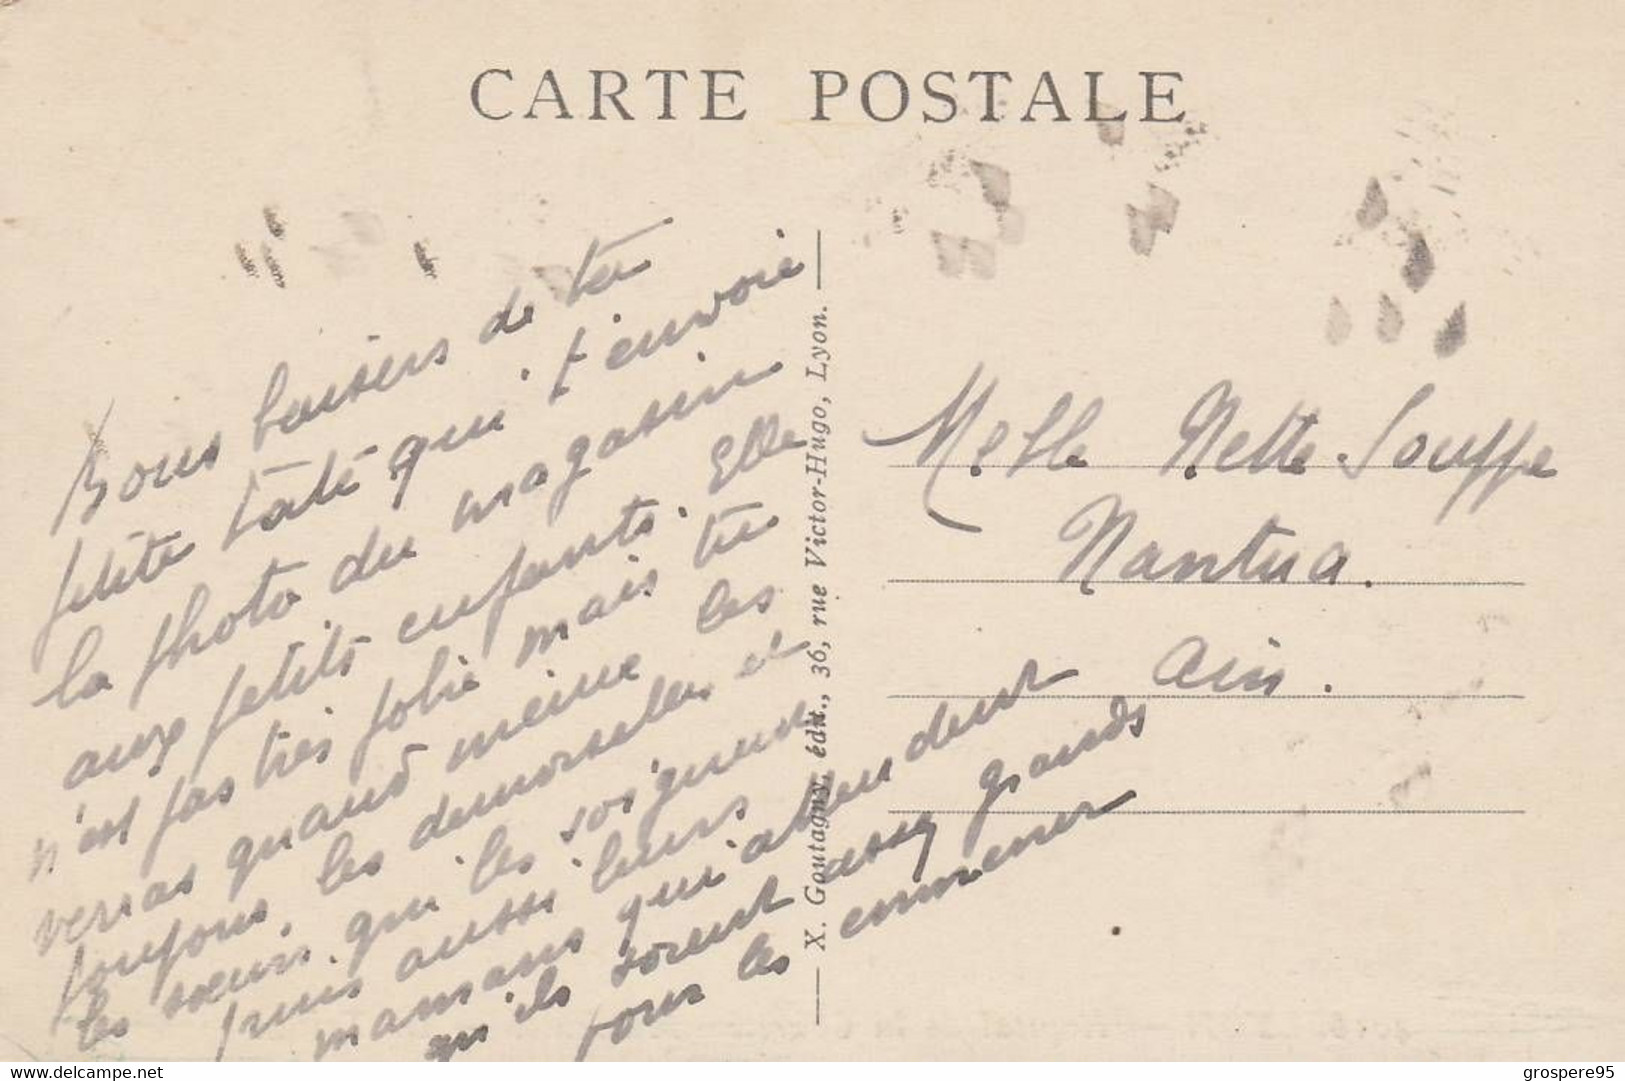 CARTE POSTALE
Bons baisers de ta
petite tâté qui t'envoie
la photo du magasin
aux petits enfants. Elle
n'est pas très jolie mais tu
verras quand même les
poupons, les demoiselles et
les sœurs qui les soignent
puis aussi leurs
mamans qui attendent
qu'ils soient assez grands
pour les emmener
X. Goutagny, édit., 36, rue Victor-Hugo, Lyon.
Melle Nette Souffe
Nantua.
Ain.
delcampe.net
grospere95